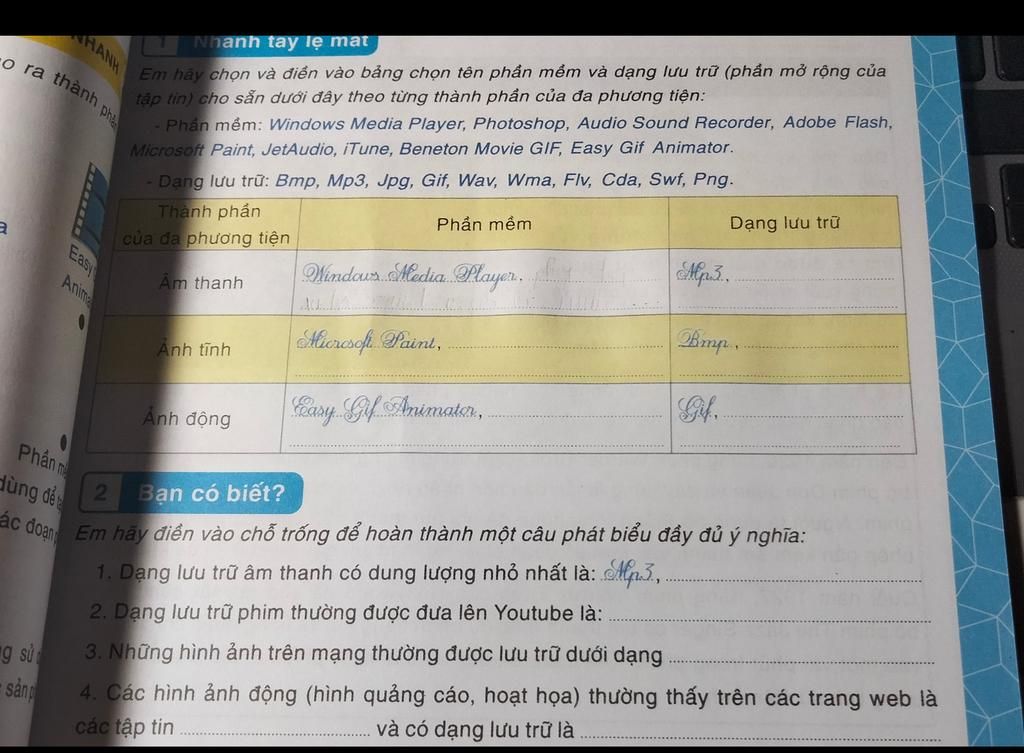 NHANH
o ra thành phần
a
Easy
Anima
Phần
dùng để
ác đoạn
g sử
sản
1 Nhanh tay lẹ mắt
Em hãy chọn và điền vào bảng chọn tên phần mềm và dạng lưu trữ (phần mở rộng của
tập tin) cho sẵn dưới đây theo từng thành phần của đa phương tiện:
- Phần mềm: Windows Media Player, Photoshop, Audio Sound Recorder, Adobe Flash,
Microsoft Paint, JetAudio, iTune, Beneton Movie GIF, Easy Gif Animator.
- Dạng lưu trữ: Bmp, Mp3, Jpg, Gif, Wav, Wma, Flv, Cda, Swf, Png.
Thành phần
của đa phương tiện
Phần mềm
Dạng lưu trữ
Âm thanh
Windows Media Player,
Mp3,
Ảnh tĩnh
Microsoft Paint,
Bmp,
Ảnh động
Easy Gif Animator,
Gif,
2 Bạn có biết?
Em hãy điền vào chỗ trống để hoàn thành một câu phát biểu đầy đủ ý nghĩa:
1. Dạng lưu trữ âm thanh có dung lượng nhỏ nhất là: Mp3,
2. Dạng lưu trữ phim thường được đưa lên Youtube là:
3. Những hình ảnh trên mạng thường được lưu trữ dưới dạng
4. Các hình ảnh động (hình quảng cáo, hoạt họa) thường thấy trên các trang web là
các tập tin và có dạng lưu trữ là